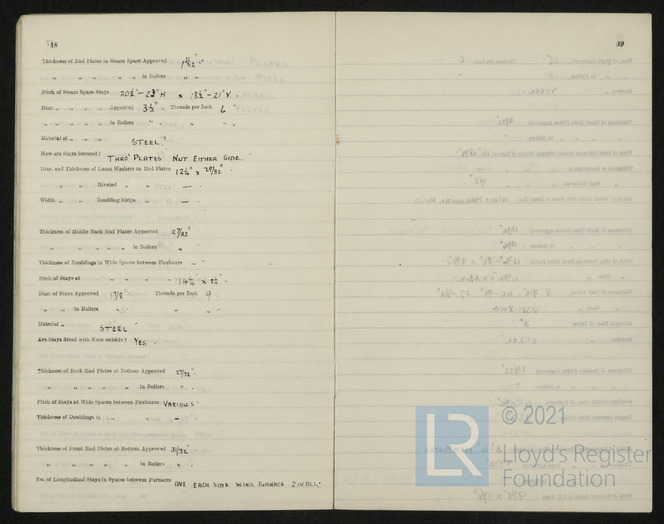 18
Thickness of End Plates in Steam Space Approved
" " " " " in Boilers " "
Pitch of Steam Space Stays
Diar. " " " Approved 3½" Threads per Inch 6
" " " " in Boilers " " "
Material of " " " STEEL.
How are Stays Secured? THRO' PLATES NUT EITHER SIDE.
Diar. and Thickness of Loose Washers on End Plates
" " Riveted " " " —
Width " " Doubling Strips " " —
Thickness of Middle Back End Plates Approved 27/32"
" " " " " in Boilers "
Thickness of Doublings in Wide Spaces between Fireboxes —
Pitch of Stays at " " "
Diar. of Stays Approved 1⅞" Threads per Inch 9
" " in Boilers " " "
Material " STEEL
Are Stays fitted with Nuts outside? YES.
Thickness of Back End Plates at Bottom Approved 27/32"
" " " " " in Boilers "
Pitch of Stays at Wide Spaces between Fireboxes VARIOUS
Thickness of Doublings in " " " —
Thickness of Front End Plates at Bottom Approved 31/32"
" " " " " in Boilers "
No. of Longitudinal Stays in Spaces between Furnaces ONE EACH SIDE WING FURNACE 2 IN ALL.
© 2021
LR
Lloyd's Register
Foundation